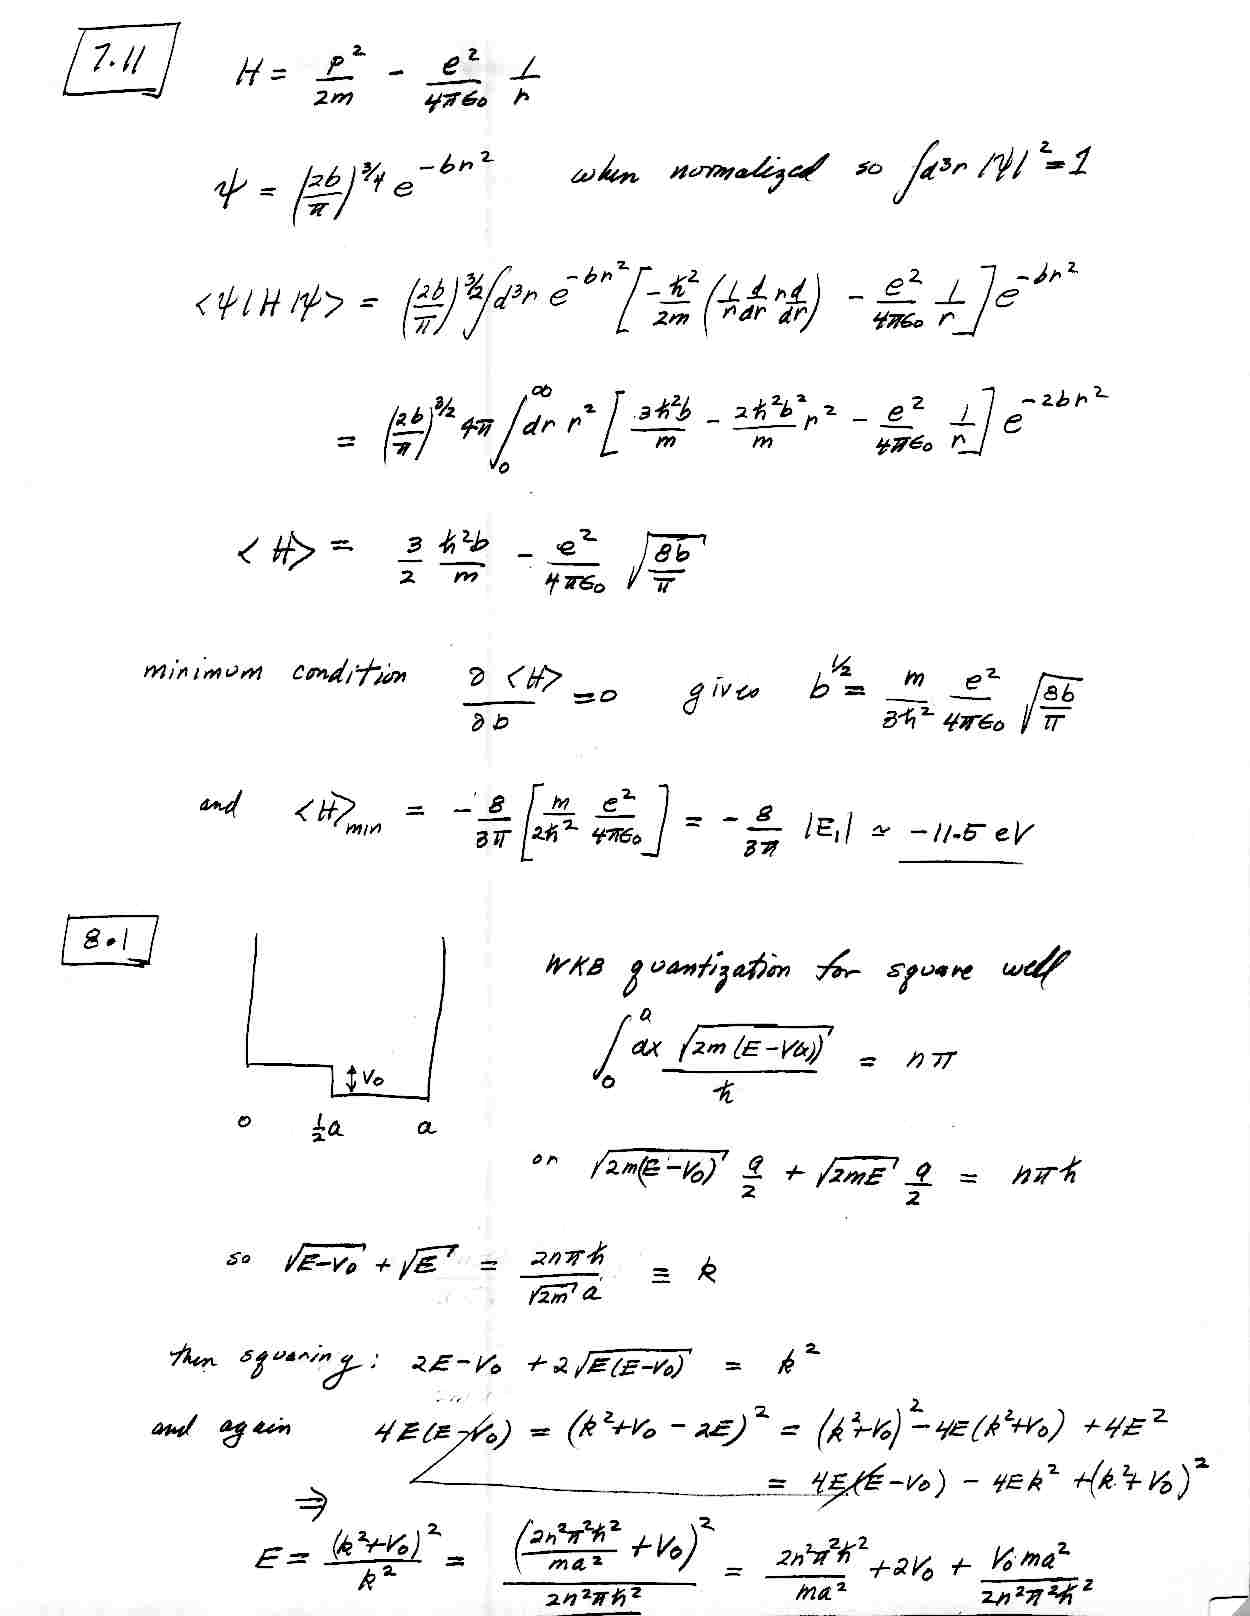 7.11 H = p²/2m - e²/4πε₀ 1/r
ψ = (2b/π)^3/4 e^-br² when normalized so ∫d³r |ψ|² = 1
<ψ|H|ψ> = (2b/π)^3/2 ∫d³r e^-br² [-ħ²/2m (1/r d/dr r d/dr) - e²/4πε₀ 1/r] e^-br²
= (2b/π)^3/2 4π ∫₀^∞ dr r² [3ħ²b/m - 2ħ²b²/m r² - e²/4πε₀ 1/r] e^-2br²
<H> = 3/2 ħ²b/m - e²/4πε₀ √(8b/π)
minimum condition ∂<H>/∂b = 0 gives b^1/2 = m/3ħ² e²/4πε₀ √(8b/π)
and <H>min = -8/3π [m/2ħ² e²/4πε₀] = -8/3π |E₁| ≃ -11.5 eV
8.1 WKB quantization for square well
∫₀^a dx √(2m(E-V(x)))/ħ = nπ
V₀
0 ½a a
or √(2m(E-V₀)) a/2 + √(2mE) a/2 = nπħ
so √(E-V₀) + √E = 2nπħ/(√(2m) a) ≡ k
then squaring: 2E-V₀ + 2√(E(E-V₀)) = k²
and again 4E(E-V₀) = (k²+V₀ - 2E)² = (k²+V₀)² - 4E(k²+V₀) + 4E²
= 4E(E-V₀) - 4Ek² + (k²+V₀)²
⇒
E = (k²+V₀)²/k² = (2n²π²ħ²/ma² + V₀)²/2n²πħ² = 2n²π²ħ²/ma² + 2V₀ + V₀ma²/2n²π²ħ²